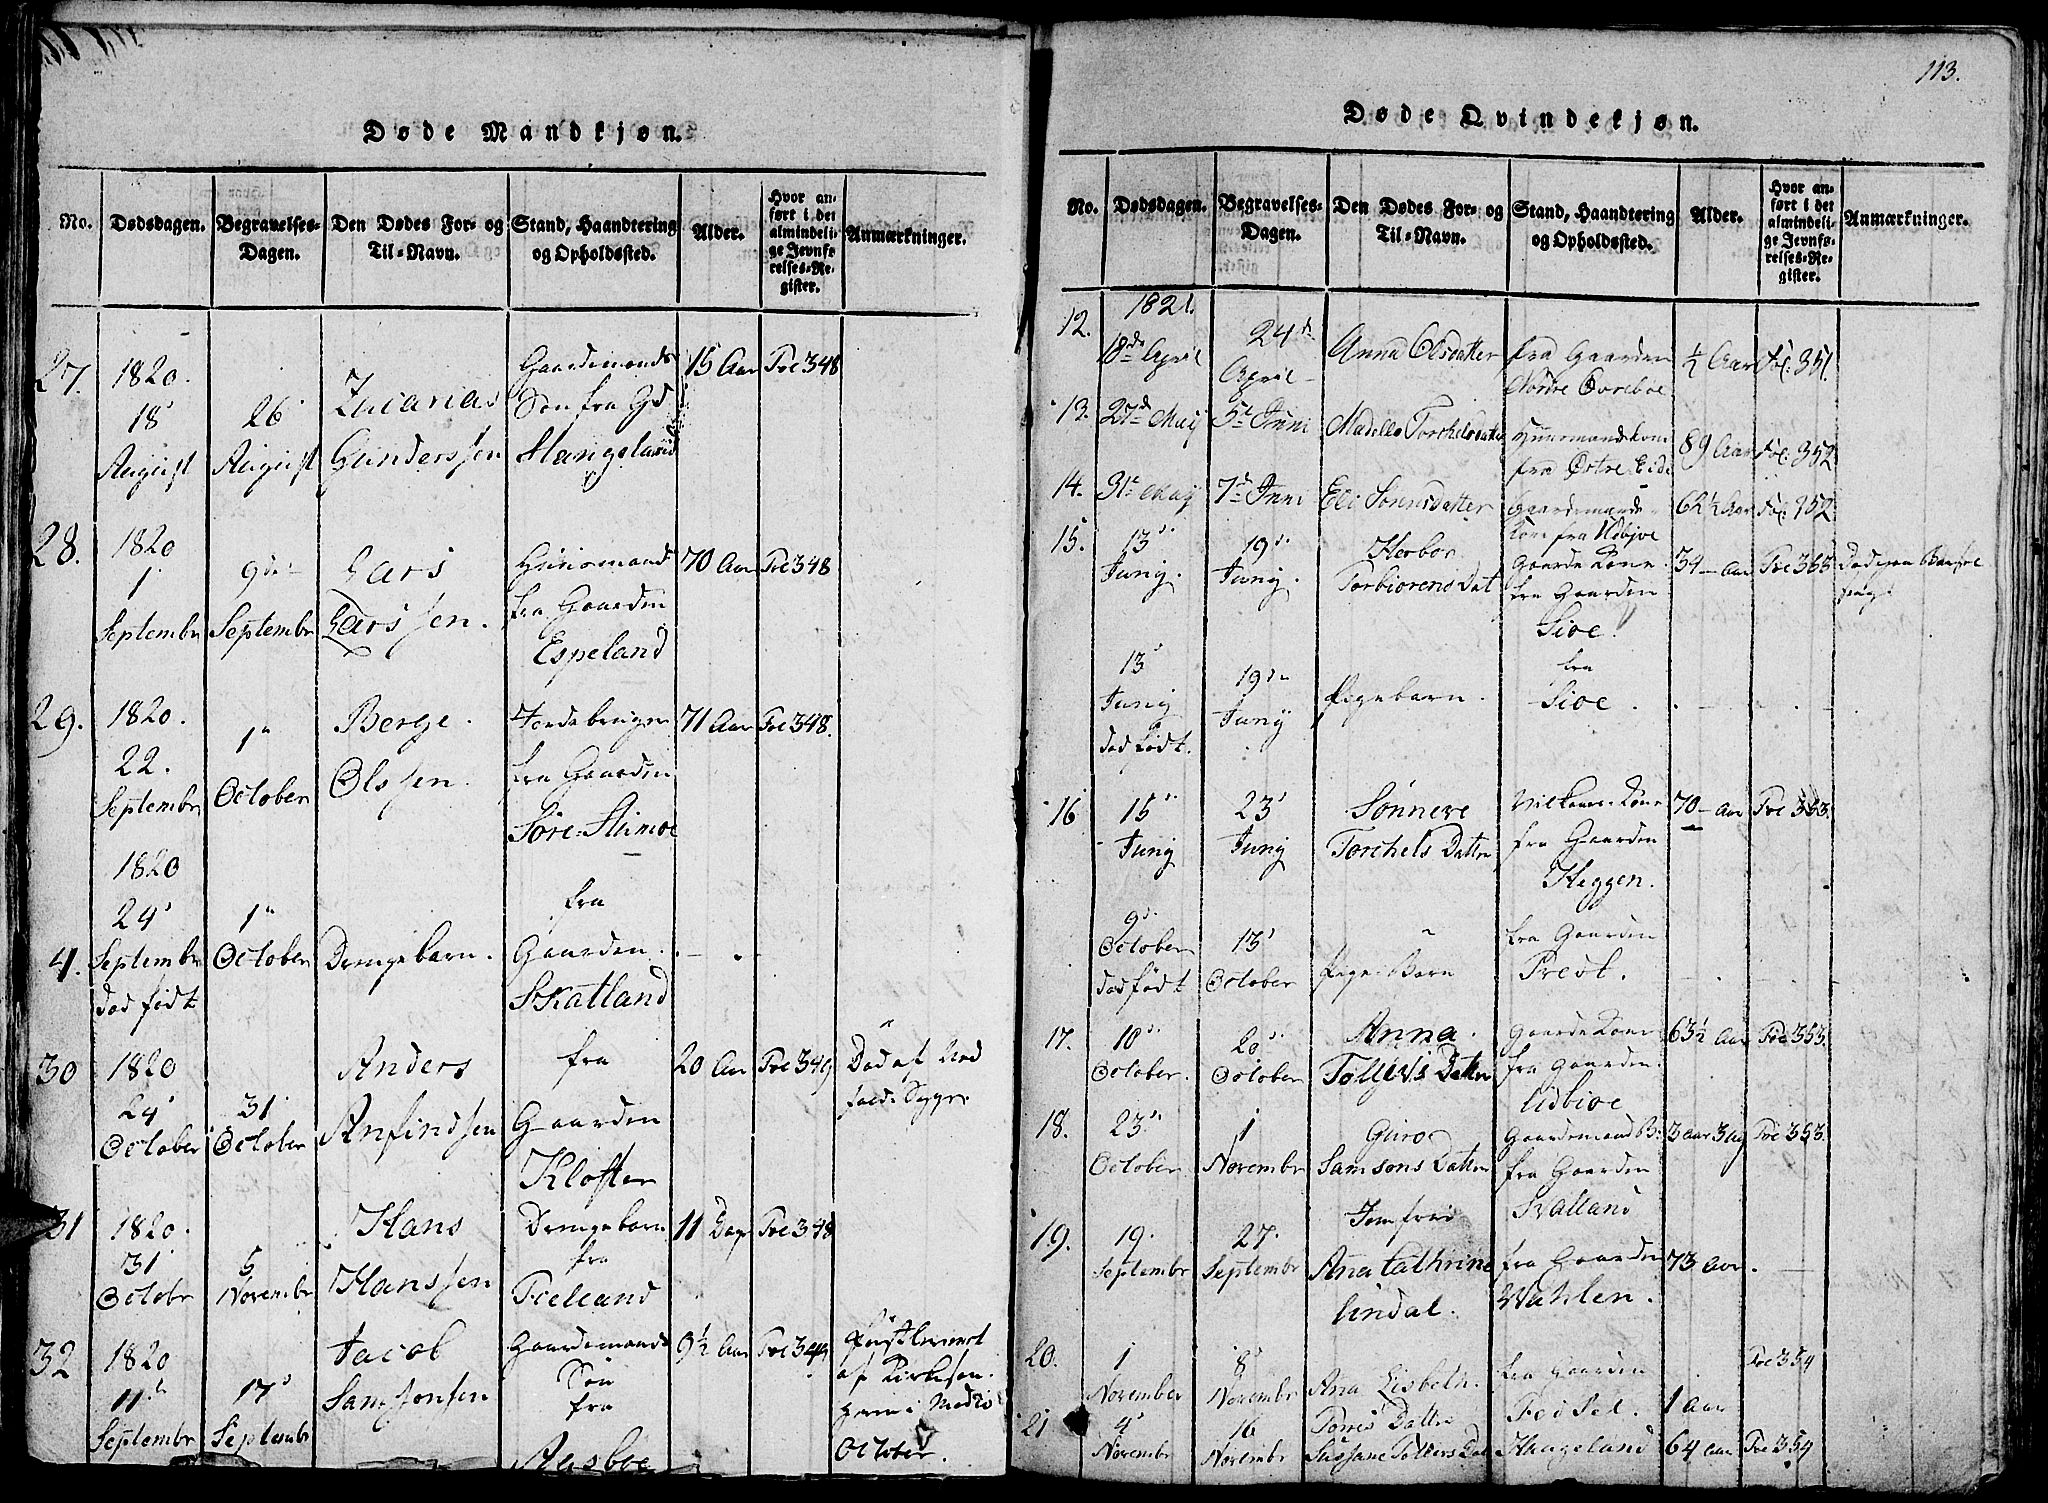 113.
Døde Mandkjøn.
No.
Dødsdagen.
Begravelses-
Dagen.
Den Dødes For- og
Til-Navn.
Stand, Haandtering
og Opholdssted.
Alder.
Hvor an-
ført i det
almindeli-
ge Jevnfø-
relses-Re-
gister.
Anmærkninger.
27.
1820.
18
August
26
August
Zacarias
Gunderssen
Gaardemands
Søn fra Gd
Hangeland
15 Aar
Fol 348
28.
1820
1
Septembr
9de
Septembr
Lars
Larssen.
Huusmand
fra Gaarden
Espeland
70 Aar
Fol 348
29.
1820.
22.
Septembr
1
October
Berge.
Olssen.
Jordebruger
fra Gaarden
Søre-Stumoe
71 Aar
Fol 348.
4.
1820
24
Septembr
død født
1
October
Drengebarn.
fra
Gaarden.
Skatland
30
1820
24
October
31
October
Anders
Anfindsen
fra
Gaarden
Kloften
20 Aar
Fol 349
Død af
31
1820.
31
Octobr
5
Novembr
Hans
Hanssen
Drengebarn
fra
11 Dage
Fol 348
32
1820
11
Septembr
17
Septembr
Jacob
Samsonsen
Gaardemands
Søn
fra
Aasboe
9½ Aar
Fol 349
October.
Døde Qvindekjøn.
No.
Dødsdagen.
Begravelses-
Dagen.
Den Dødes For- og
Til-Navn.
Stand, Haandtering
og Opholdssted.
Alder.
Hvor an-
ført i det
almindeli-
ge Jevnfø-
relses-Re-
gister.
Anmærkninger.
12.
1821.
18de April
24d
April
Anna Olsdatter
fra Gaarden
Nordre Øvreboe
½ Aar
Fol: 351.
13.
27d May
5te Juni
Madelle Torchelsdatter
Huusmandskone
fra Østre Eide
89 Aar
Fol: 352
14.
31te May
7d Juni
Eli Sørensdatter
Gaardemands-
Kone fra Udbjoe
62½ Aar
Fol: 352
15.
13
Juny.
19
Juny.
Herbor
TorbiorensDat
Gaarde Kone
fra Gaarden
Sioe.
34 Aar
Fol 353
Død paa Barsel
seng
13
Juny
død født.
19de
Juny
Pigebarn.
fra
Sioe.
16
15
Juny
23
Juny
Sønneve
Torchels Datter
Vilkaars-Kone
fra Gaarden
Heggen.
70 Aar
Fol 353.
9
October
død født
13
October
Pige-Barn
fra Gaarden
Præst.
17.
10
October.
20
October
Anna.
Tollefs Datter
Gaarde Kone
fra Gaarden
Udbioe
63½ Aar
Fol 353.
18.
23
October
1
Novembr
Guro
Samsons Datter
Gaardemands B:
fra Gaarden
Skatland
3 Aar
Fol 353.
19.
19.
Septembr
27.
Septembr
Jomfrue
Ana Cathrine
Lindal.
fra Gaarden
Wahlen.
73 Aar.
20.
1
November
8
Novembr
Ana Lisbeth
Tøris Datter
fra Gaarden
1 Aar
Fol 354
21
4
Novembr
16
Novembr
Sussane Tollefs Dat
Haugeland
64 Aar
Fol 354